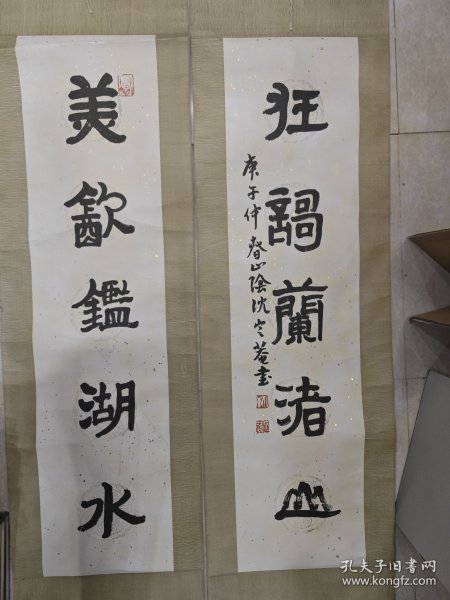 狂謌蘭渚山
庚午仲春山陰沈定菴書
美㱃鑑湖水
孔夫子旧书网
www.kongfz.com